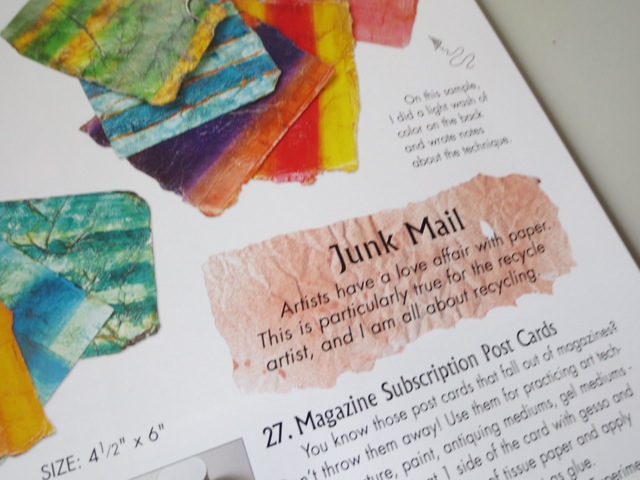 On this sample,
I did a light wash of
color on the back
and wrote notes
about the technique.
Junk Mail
Artists have a love affair with paper.
This is particularly true for the recycle
artist, and I am all about recycling.
27. Magazine Subscription Post Cards
You know those post cards that fall out of magazines?
throw them away! Use them for practicing art tech-
paint, antiquing mediums, gel mediums -
1 side of the card with gesso and
of tissue paper and apply
glue.
SIZE: 4 1/2" x 6"